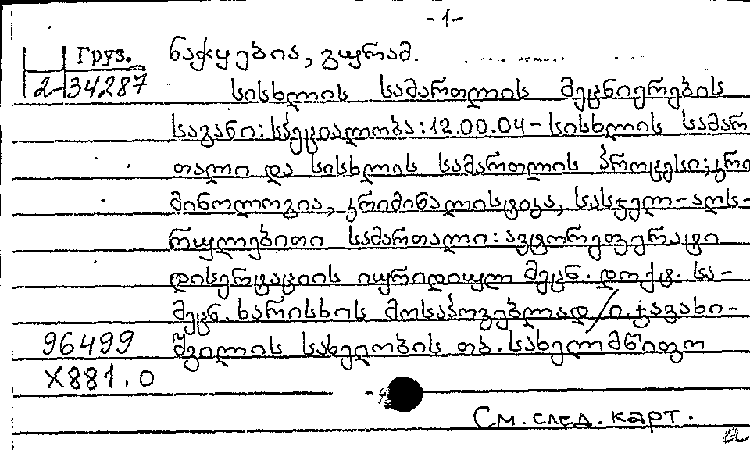 -1-
Груз. ნაჭყებია, გურამ.
2-34287 სისხლის სამართლის მეცნიერების
საგანი: სპეციალობა: 12.00.04 - სისხლის სამარ
თალი და სისხლის სამართლის პროცესი; კრი
მინოლოგია, კრიმინალისტიკა, სასჯელ-აღს-
რულებითი სამართალი: ავტორეფერატი
დისერტაციის იურიდიულ მეცნ. დოქტ. სა-
მეცნ. ხარისხის მოსაპოვებლად / ი. ჯავახი-
96499 შვილის სახელობის თბ. სახელმწიფო
X881.0
См. след. карт.